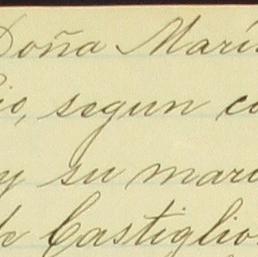 Doña Marí
io, segun co
y su mari
de Castiglio